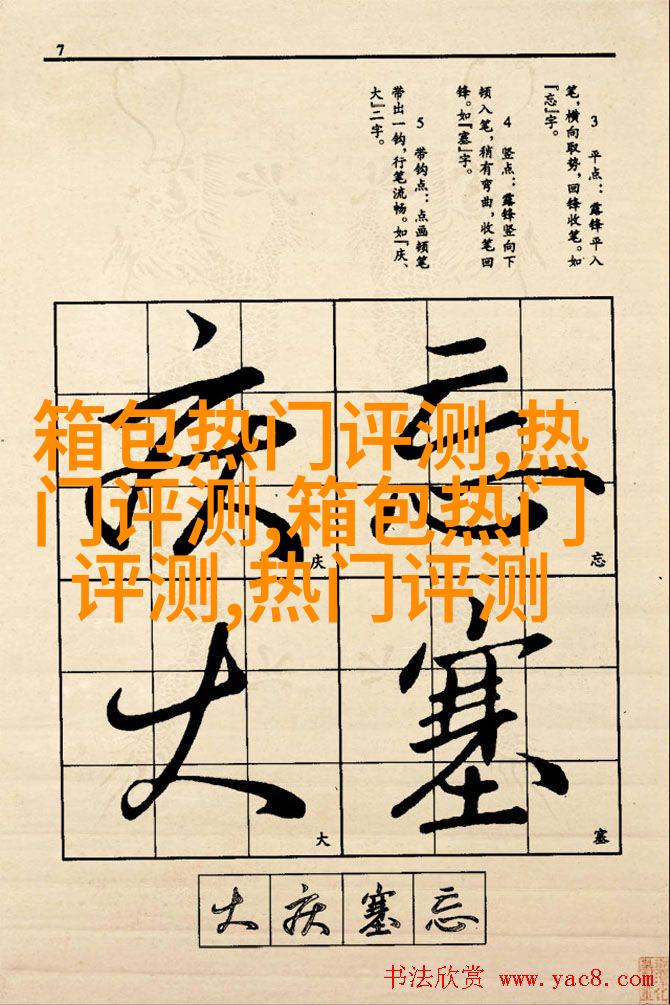 7
3 平点：露锋平入
笔，横向取势，回锋收笔。如
『忘』字。
4 竖点：露锋竖向下
顿入笔，稍有弯曲，收笔回
锋。如『塞』字。
5 带钩点：点画顿笔
带出一钩，行笔流畅。如『庆、
大』二字。
箱包热门评测,热
门评测,箱包热门
评测,热门评测
忘
塞
庆
大
忘
塞
庆
大
大庆塞忘
书法欣赏 www.yac8.com